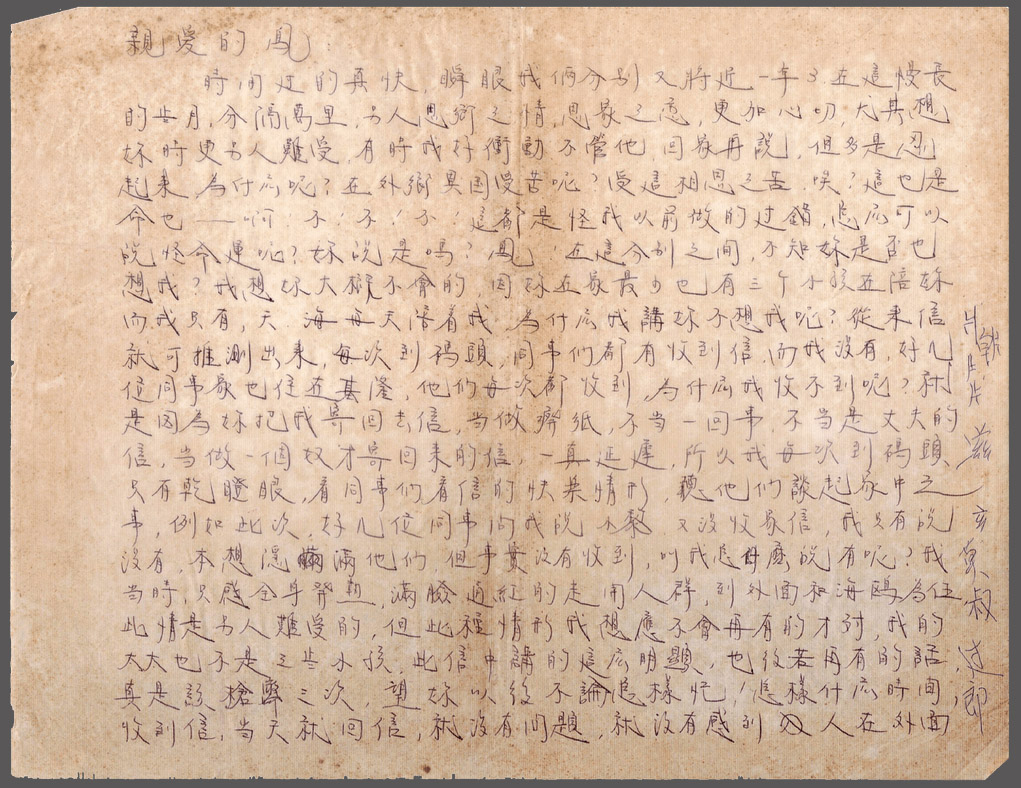 親愛的鳳：
時間过的真快，瞬眼我俩分别又將近一年了在這慢長
的些月，分隔萬里，另人思鄉之情，思家之意，更加心切，尤其想
妳時更另人難受，有時我好衝動不管他，回家再說，但多是忍
起來，為什広呢？在外鄉異国受苦呢？受這相思之苦，唉？這也是
命也——啊 不！不！不！這都是怪我以前做的过錯，怎広可以
說怪命運呢？妳說是嗎？鳳！在這分别之间，不知妳是否也
想我？我想妳大概不會的，因妳在家最少也有三个小孩在陪妳
而我只有，天 海每天陪着我 為什広我講妳不想我呢？從來信
就可推測出來，每次到碼頭，同事们都有收到信，而我没有，好几
位同事家也住在基隆，他们每次都收到，為什広我收不到呢？就
是因為妳把我寄回去信，当做癈纸，不当一回事，不当是丈夫的
信，当做一個奴才寄回来的信，一真延遲，所以我每次到碼頭
只有乾瞪眼，看同事们看信的快樂情形 聽他们談起家中之
事，例如此次，好几位同事问我說 小 又没收家信，我只有說
没有，本想隠瞞他们，但事實没有收到，叫我怎麽說有呢？我
当時，只感全身發熱，滿臉通紅的走開人群，到外面和海鷗為伍
此情是另人難受的，但此種情形我想應不會再有的才对，我的
太太也不是三岁小孩 此信中講的這広明顯，也後若再有的話
真是該槍斃三次，望妳以後不論怎樣忙！怎樣什広時间
收到信，当天就回信，就没有問題，就没有感到 人在外面